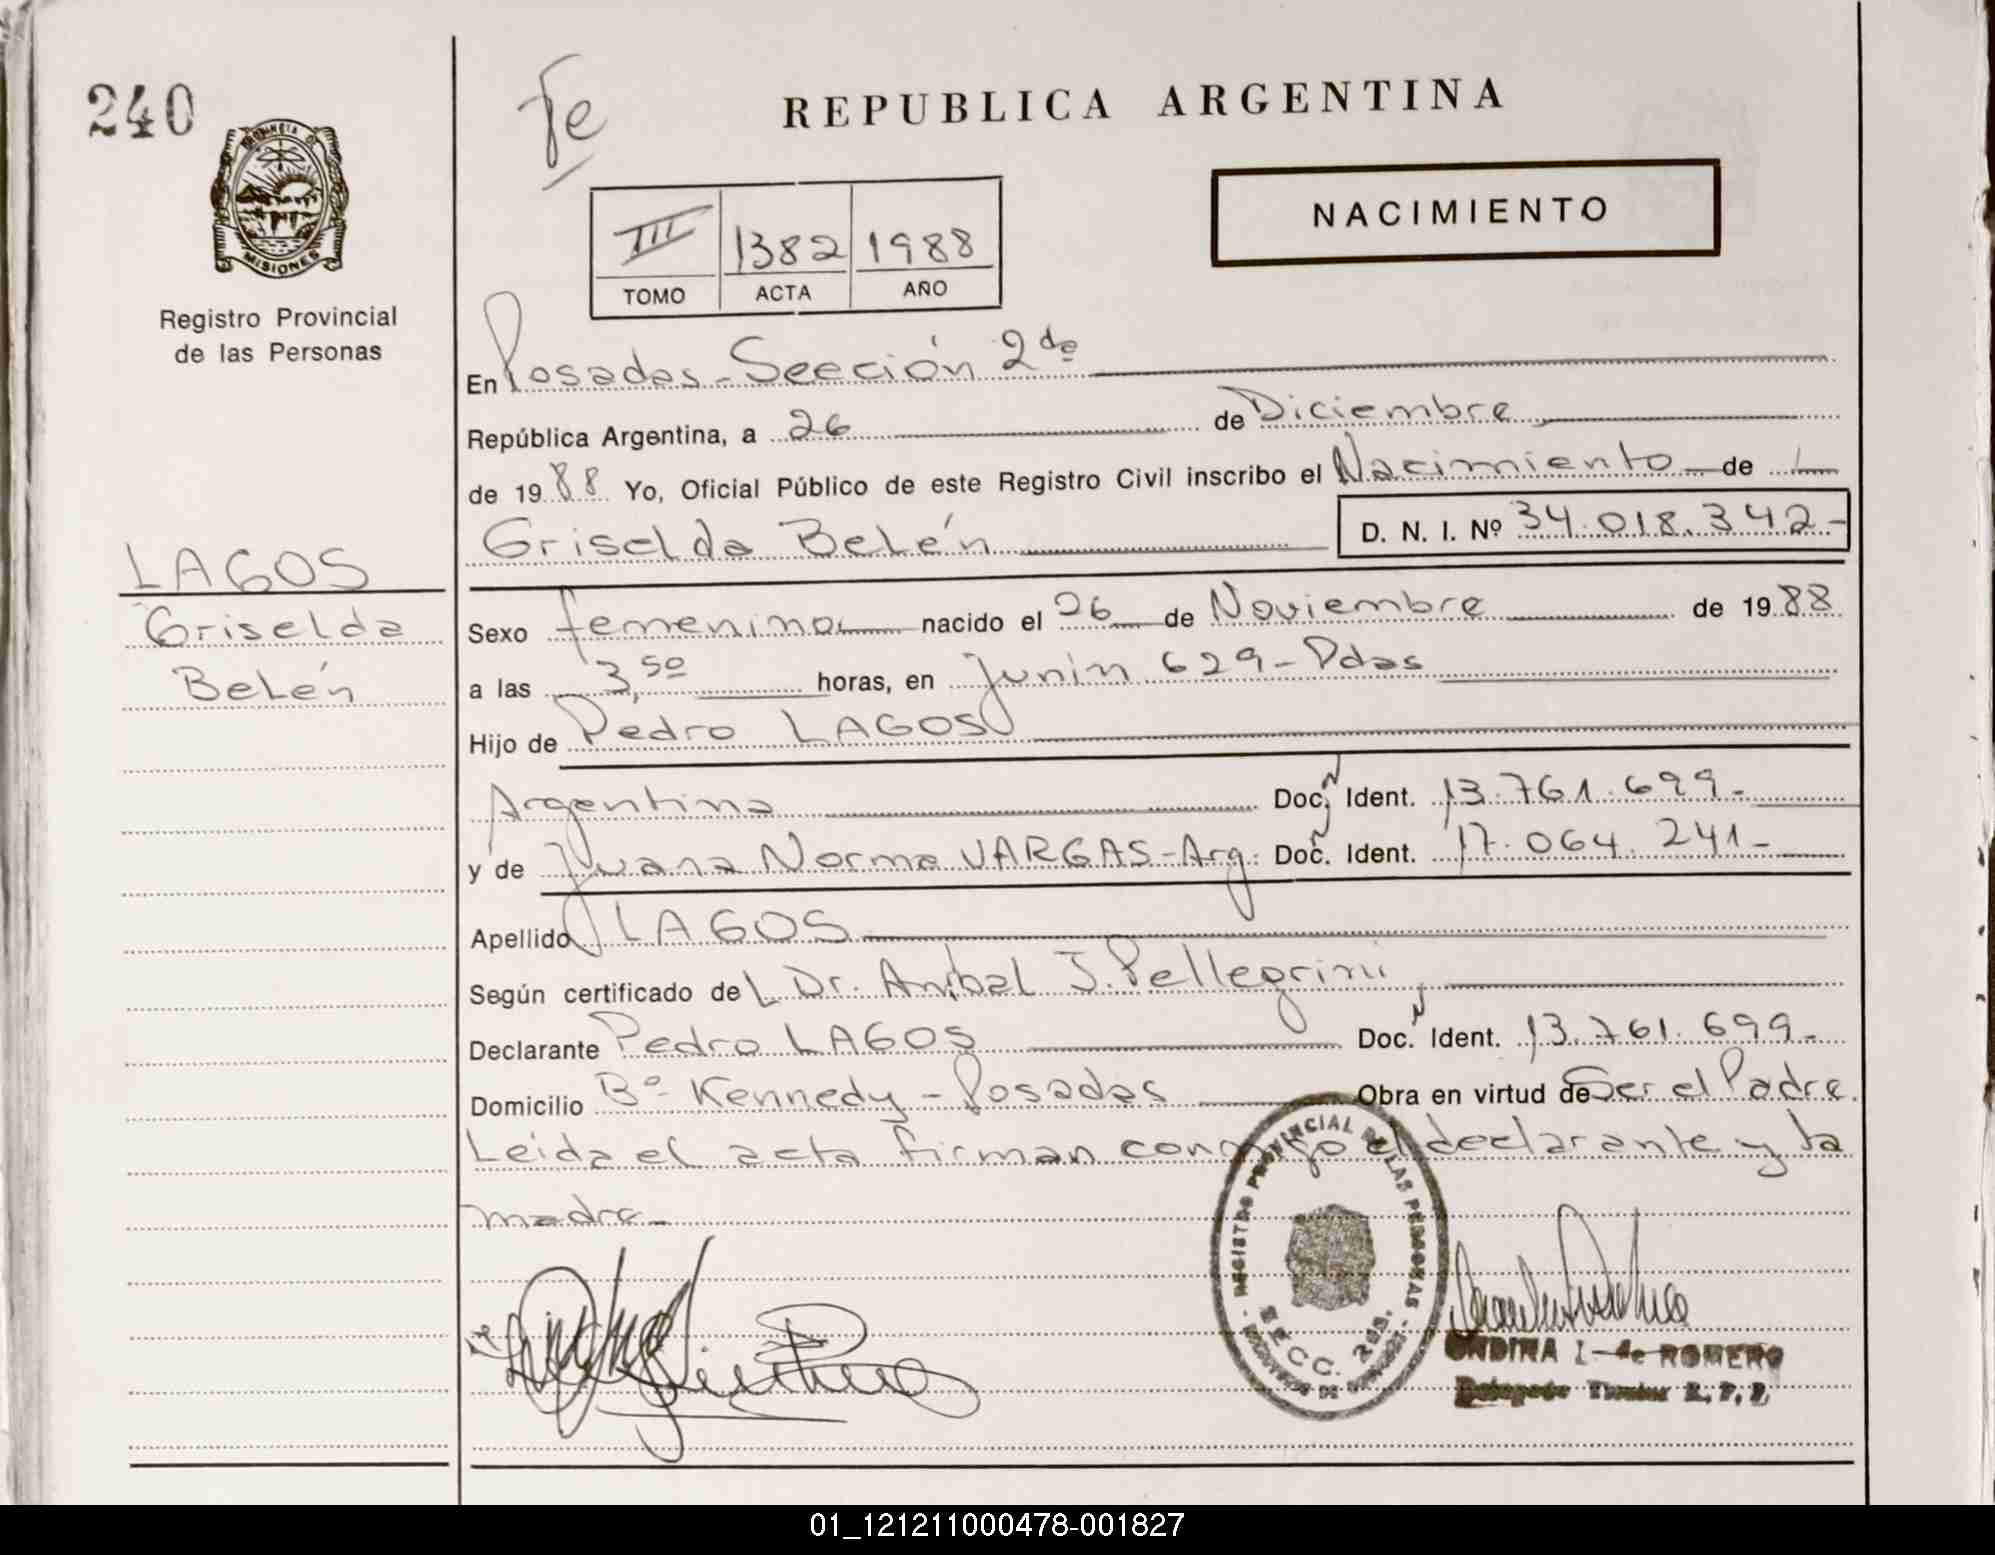 240
Fe
REPUBLICA ARGENTINA
PROVINCIA DE
MISIONES
NACIMIENTO
III 1382 1988
TOMO ACTA AÑO
Registro Provincial
de las Personas
En Posadas - Sección 2da
República Argentina, a 26 de Diciembre
de 1988 Yo, Oficial Público de este Registro Civil inscribo el Nacimiento de
Griselda Belén D. N. I. Nº 34.018.342-
LAGOS
Griselda
Belén
Sexo femenino nacido el 26 de Noviembre de 1988
a las 3,50 horas, en Junin 629 - Pdas
Hijo de Pedro LAGOS
Argentina Doc. Ident. 13.761.699-
y de Juana Norma VARGAS - Arg. Doc. Ident. 17.064.241-
Apellido LAGOS
Según certificado del Dr. Anibal J. Pellegrini
Declarante Pedro LAGOS Doc. Ident. 13.761.699-
Domicilio Bº Kennedy - Posadas Obra en virtud de Ser el Padre.
Leida el acta firman conmigo el declarante y la
madre-
REGISTRO PROVINCIAL DE LAS PERSONAS
SECC. 2da.
ONDINA I. de ROMERO
Delegado Titular R. P. P.
01_121211000478-001827